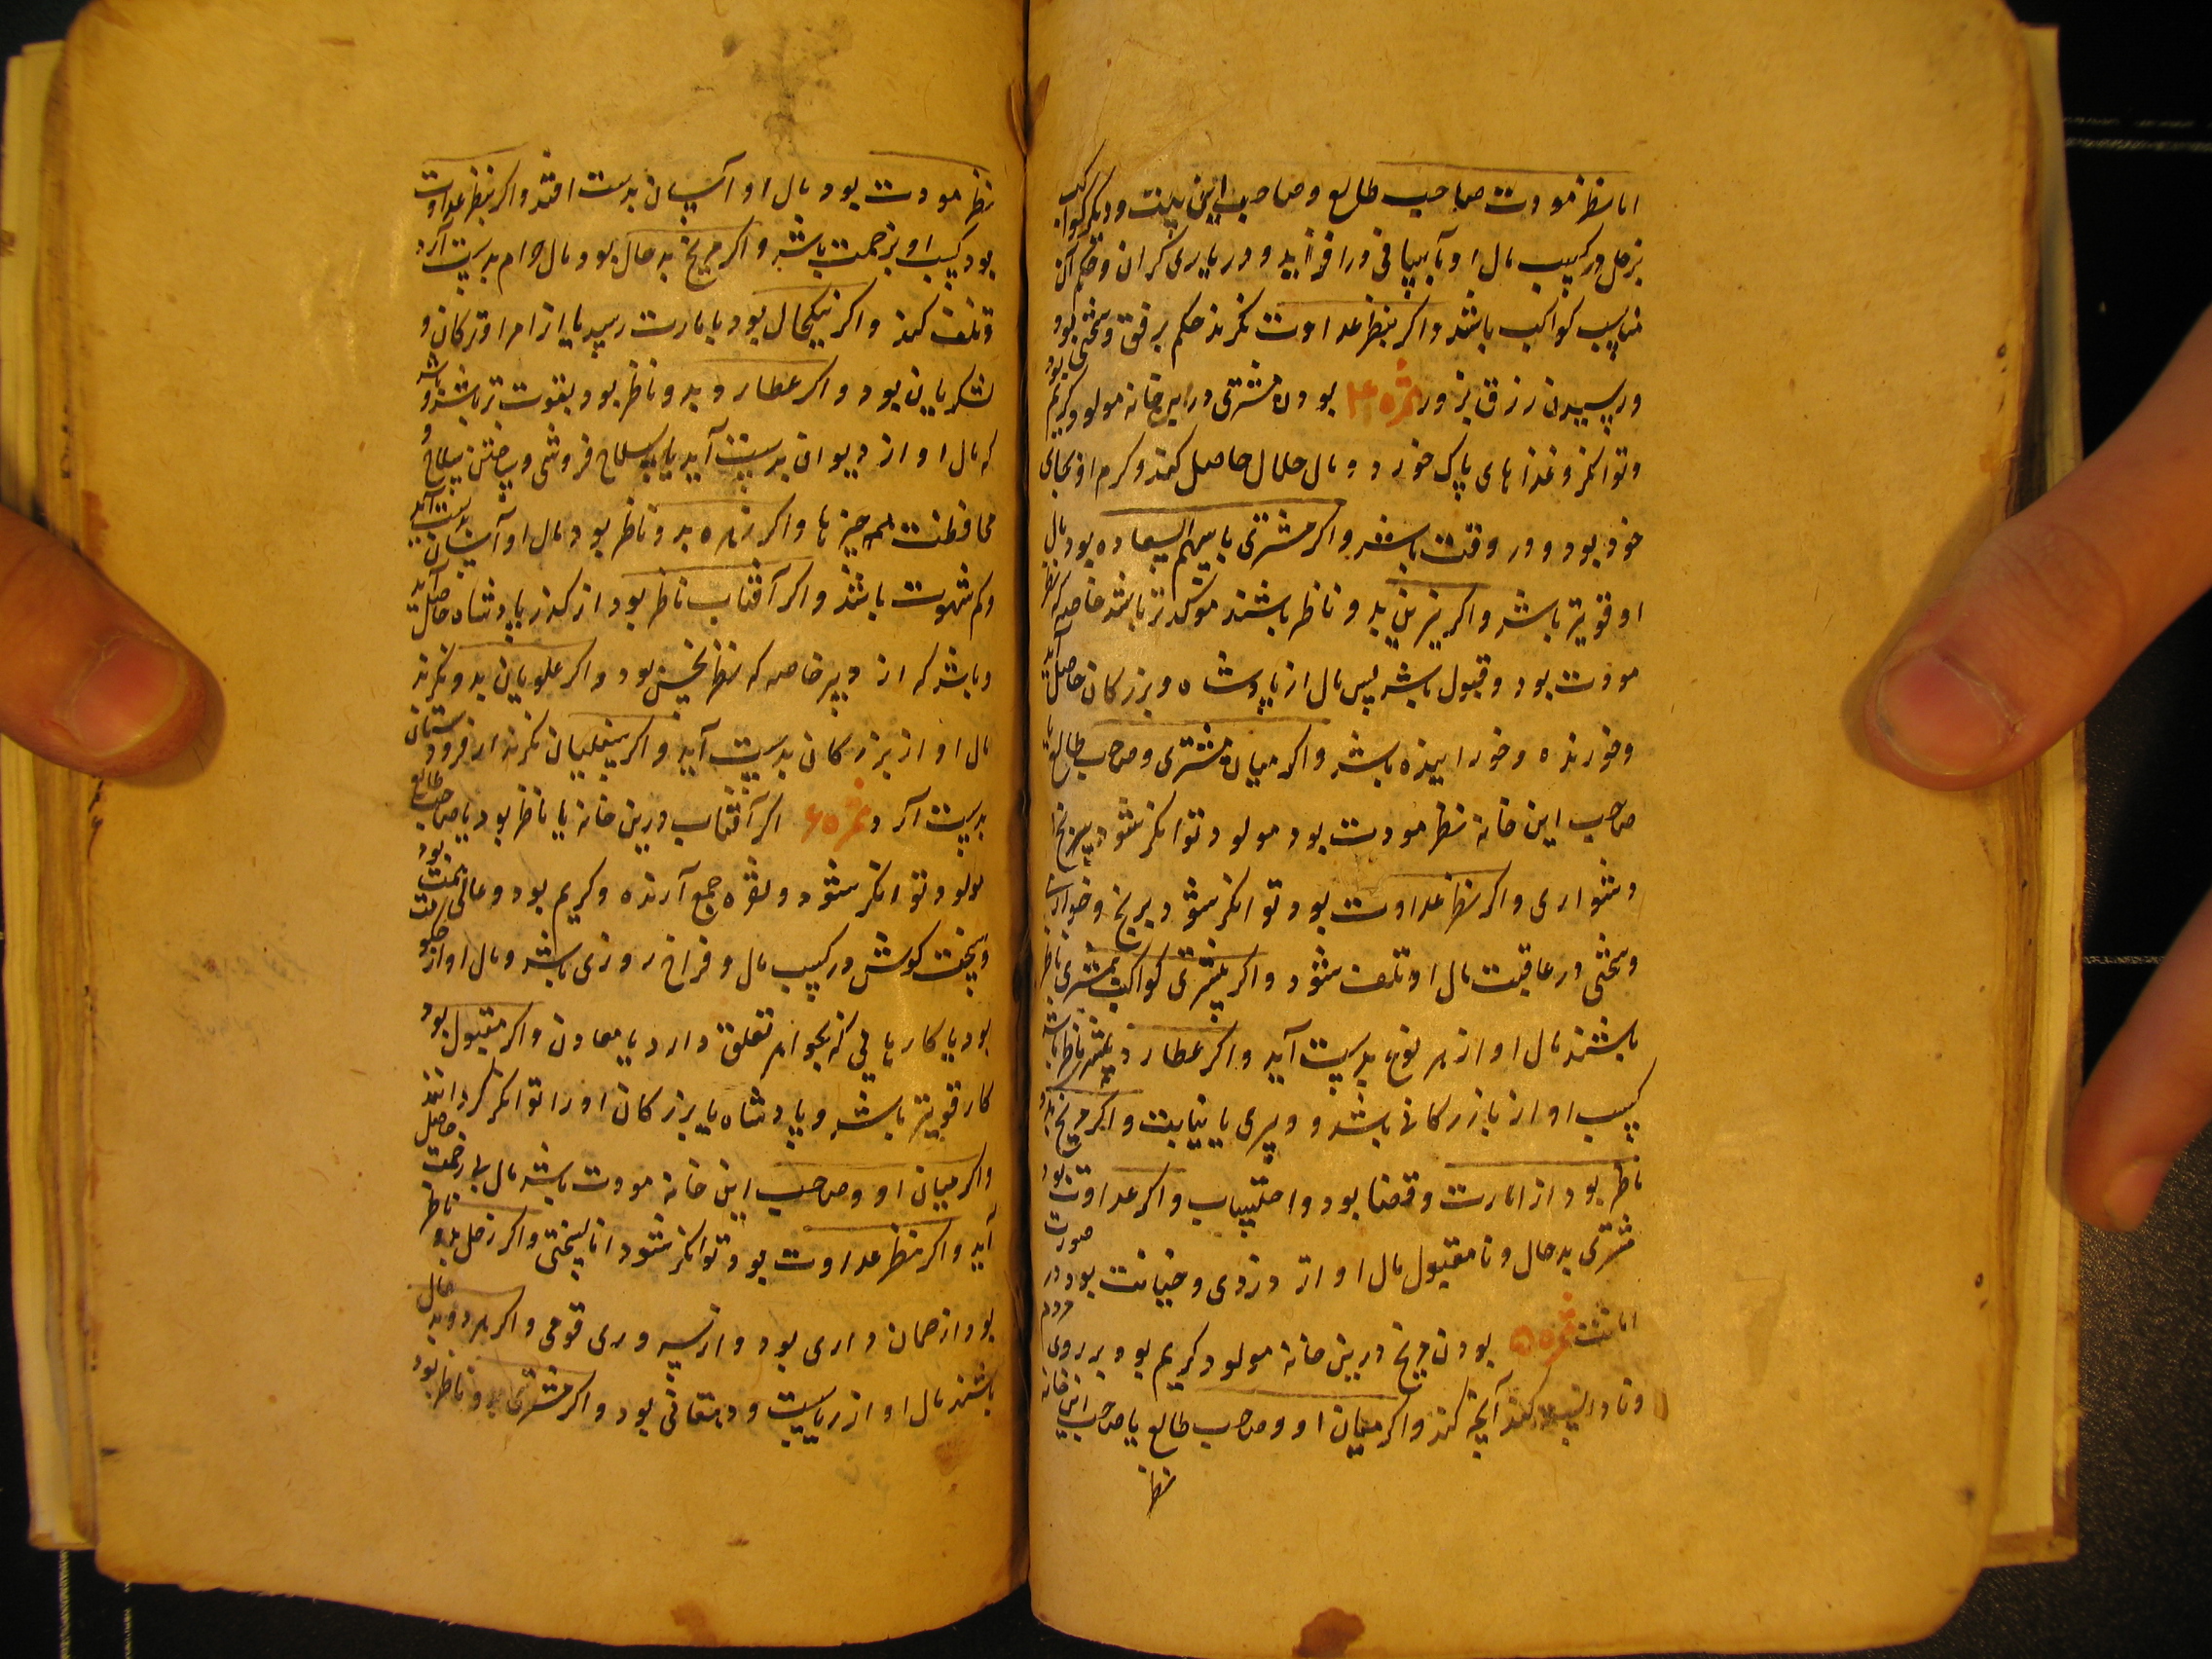 اما بنظر مودت صاحب طالع و صاحب این بیت و دیگر کواکب
بزحل در کسب مال او بآسانی در افزاید و در یاری کران و حکم آن
مناسب کواکب باشد و اکر بنظر عداوت نکرند حکم برفق و سختی بود
و رسیدن رزق بزور ثمره ۴ بودن مشتری در این خانه مولود کریم بود
و توانکر و غذاهای پاک خورد و مال حلال حاصل کند و کرم او بجای
خود بود و در وقت باشد و اکر مشتری با سهم السعاده بود مال
او قویتر باشد و اکر نیرین بدو ناظر باشند موکدتر باشد خاصه که نظر
مودت بود و قبول باشد پس مال از پادشاه و بزرکان حاصل آید
و خورنده و خوراننده باشد و اکر میان مشتری و صاحب طالع یا
صاحب این خانه نظر مودت بود مولود توانکر شود بی رنج
و دشواری و اکر نظر عداوت بود توانکر شود برنج و خواری
و سختی در عاقبت مال او تلف شود و اکر بیشتری کواکب بمشتری ناظر
باشند مال او از هر نوع بدست آید و اکر عطارد بمشتری ناظر باشد
کسب او از بازرکانی باشد و دبیری یا نیابت و اکر مریخ بدو
ناظر بود از امارت و قضا بود و احتساب و اکر عداوت بود
مشتری بدحال و نامقبول مال او از دزدی و خیانت بود در صورت
امانت ثمره ۵ بودن مریخ درین خانه مولود کریم بود بر روی مردم
و نادانسته کند آنچه کند و اکر میان او و صاحب طالع یا صاحب این خانه
نظر
نظر مودت بود مال او آسان بدست افتد و اکر بنظر عداوت
بود کسب او بزحمت باشد و اکر مریخ بدحال بود مال حرام بدست آرد
و تلف کند و اکر نیکحال بود بامارت رسید یا از امرا و ترکان و
لشکریان بود و اکر عطارد بدو ناظر بود بقوت تر باشد و باشد
که مال او از دیوان بدست آید یا بسلاح فروشی و ساختن سلاح و
محافظت همه چیزها و اکر زهره بدو ناظر بود مال او آسان بدست آید
و کم شهوت باشد و اکر آفتاب ناظر بود از کذر پادشاه مال حاصل آید
و باشد که از دبیر خاصه که نظر نحس بود و اکر علویان بدو نکرند
مال او از بزرکان بدست آید و اکر سفلیان نکرند از فرودستان
بدست آرد ثمره ۶ اکر آفتاب درین خانه یا ناظر بود یا صاحب طالع
مولود توانکر شود و نقره جمع آرنده و کریم بود و عالی همت بود
و سخت کوش در کسب مال و فراخ روزی باشد و مال او از حکومت
بود یا کارهایی که بجواهر تعلق دارد یا معادن و اکر مقبول بود
کار قویتر باشد و پادشاه یا بزرکان او را توانکر کردانند
و اکر میان او و صاحب این خانه مودت باشد مال بی زحمت حاصل
آید و اکر نظر عداوت بود توانکر شود اما بسختی و اکر زحل بدو ناظر
بود از ضمان داری بود و از سروری قومی و اکر هر دو بد حال
باشند مال او از ریاست و دهقانی بود و اکر مشتری بدو ناظر بود